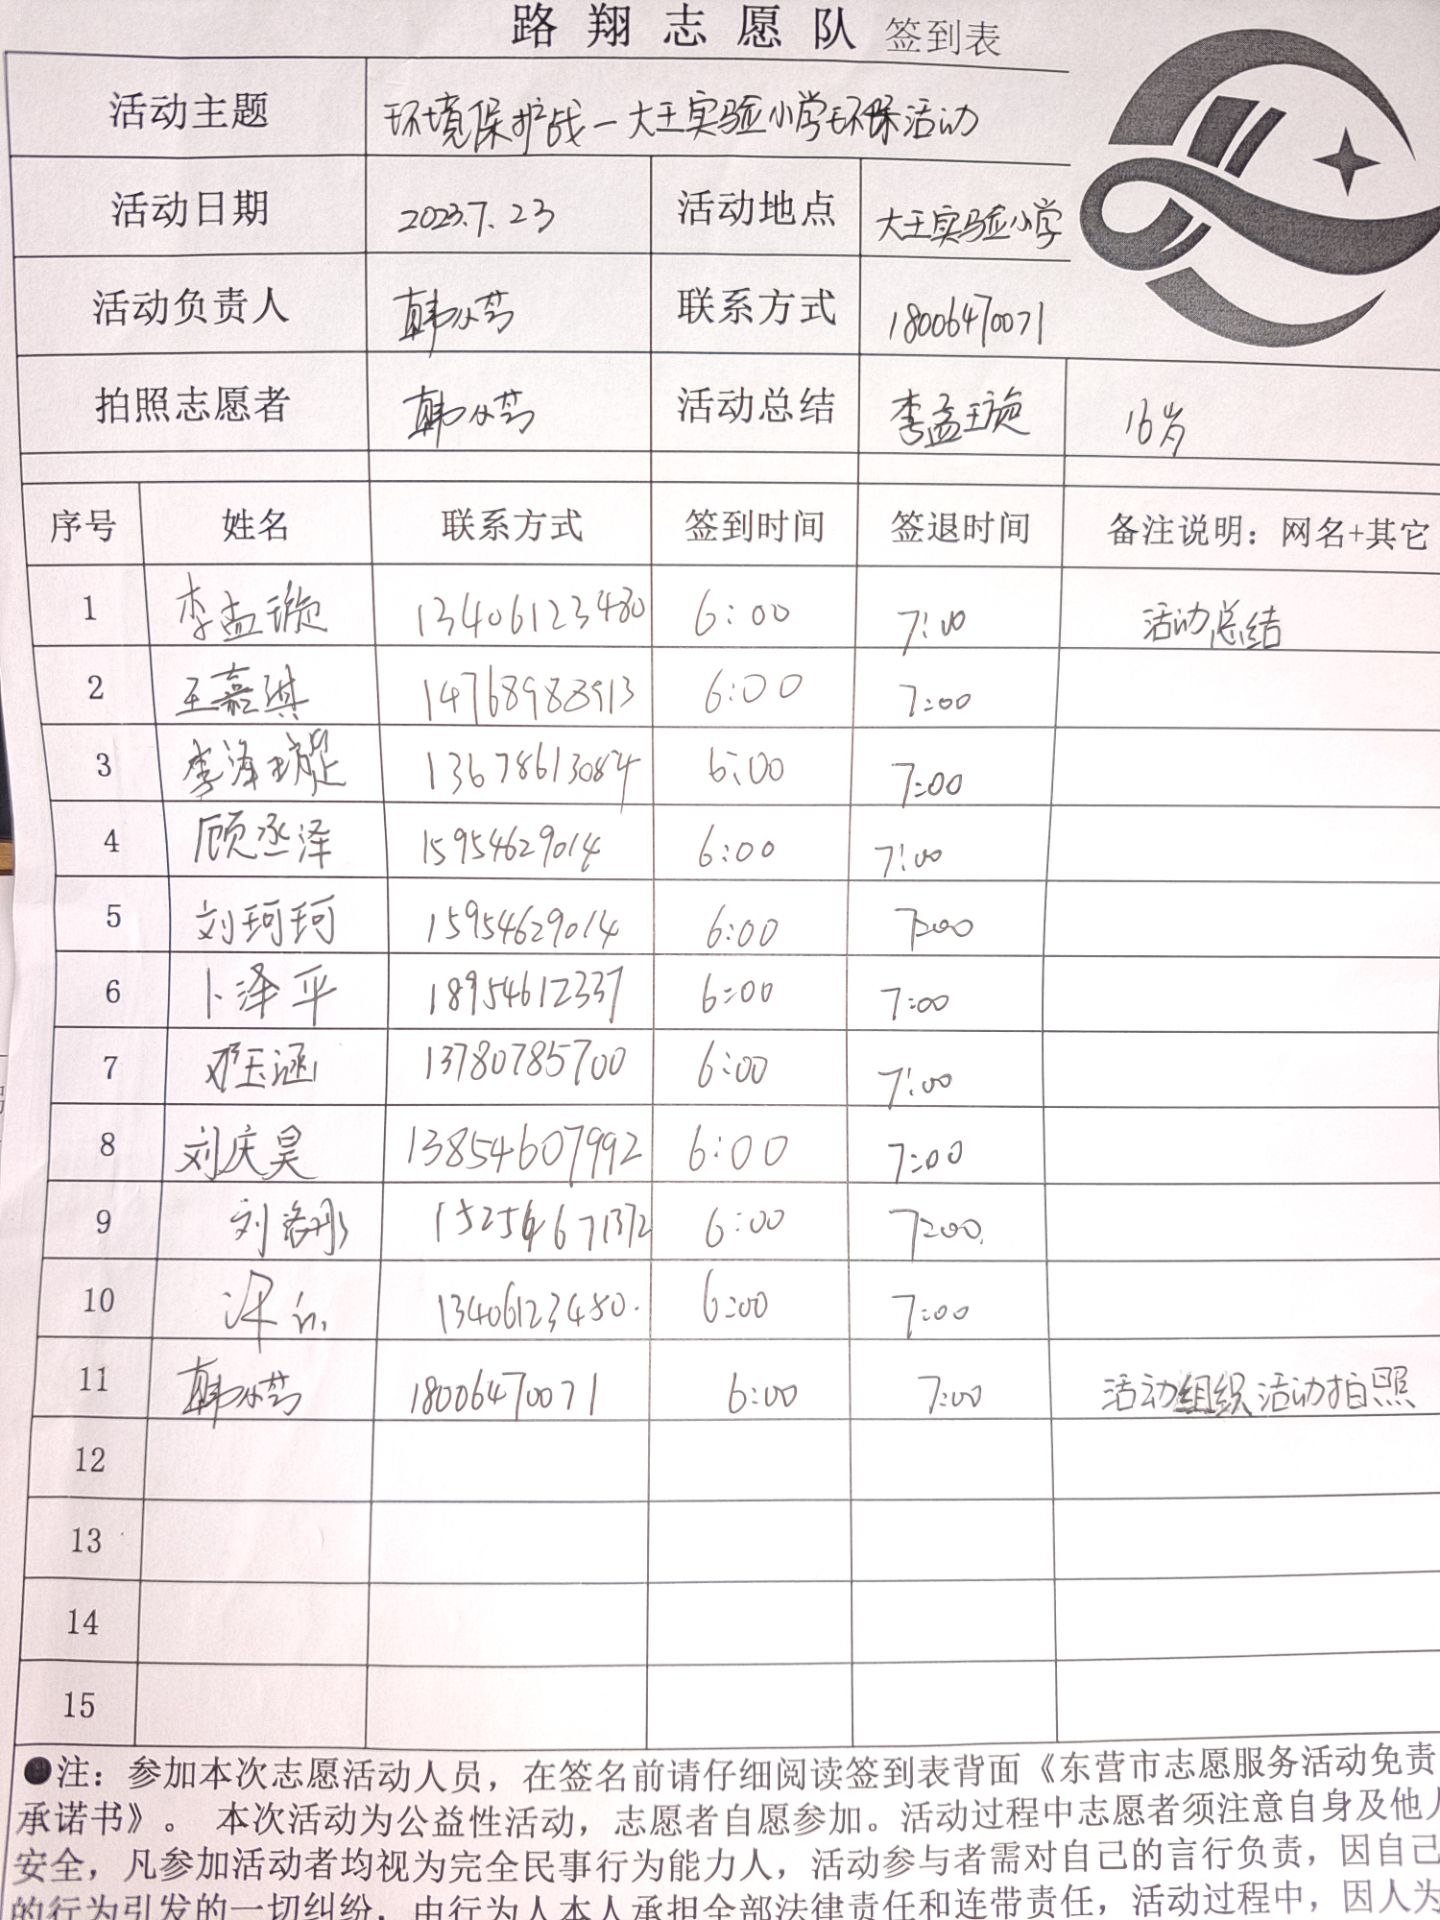 路翔志愿队 签到表
活动主题 环境保护战—大王实验小学环保活动
活动日期 2023.7.23 活动地点 大王实验小学
活动负责人 韩 联系方式 18006470071
拍照志愿者 韩 活动总结 李孟璇 16岁
序号 姓名 联系方式 签到时间 签退时间 备注说明：网名+其它
1 李孟璇 13406123480 6:00 7:00 活动总结
2 王嘉琪 14768988913 6:00 7:00
3 李泽璇 13678613084 6:00 7:00
4 顾丞泽 15954629014 6:00 7:00
5 刘珂珂 15954629014 6:00 7:00
6 卜泽平 18954612337 6:00 7:00
7 邓玉涵 13780785700 6:00 7:00
8 刘庆昊 13854607992 6:00 7:00
9 刘洺彤 15254671372 6:00 7:00
10 13406123480. 6:00 7:00
11 韩 18006470071 6:00 7:00 活动组织 活动拍照
12
13
14
15
●注：参加本次志愿活动人员，在签名前请仔细阅读签到表背面《东营市志愿服务活动免责
承诺书》。 本次活动为公益性活动，志愿者自愿参加。活动过程中志愿者须注意自身及他人
安全，凡参加活动者均视为完全民事行为能力人，活动参与者需对自己的言行负责，因自己
的行为引发的一切纠纷，由行为人本人承担全部法律责任和连带责任，活动过程中，因人为